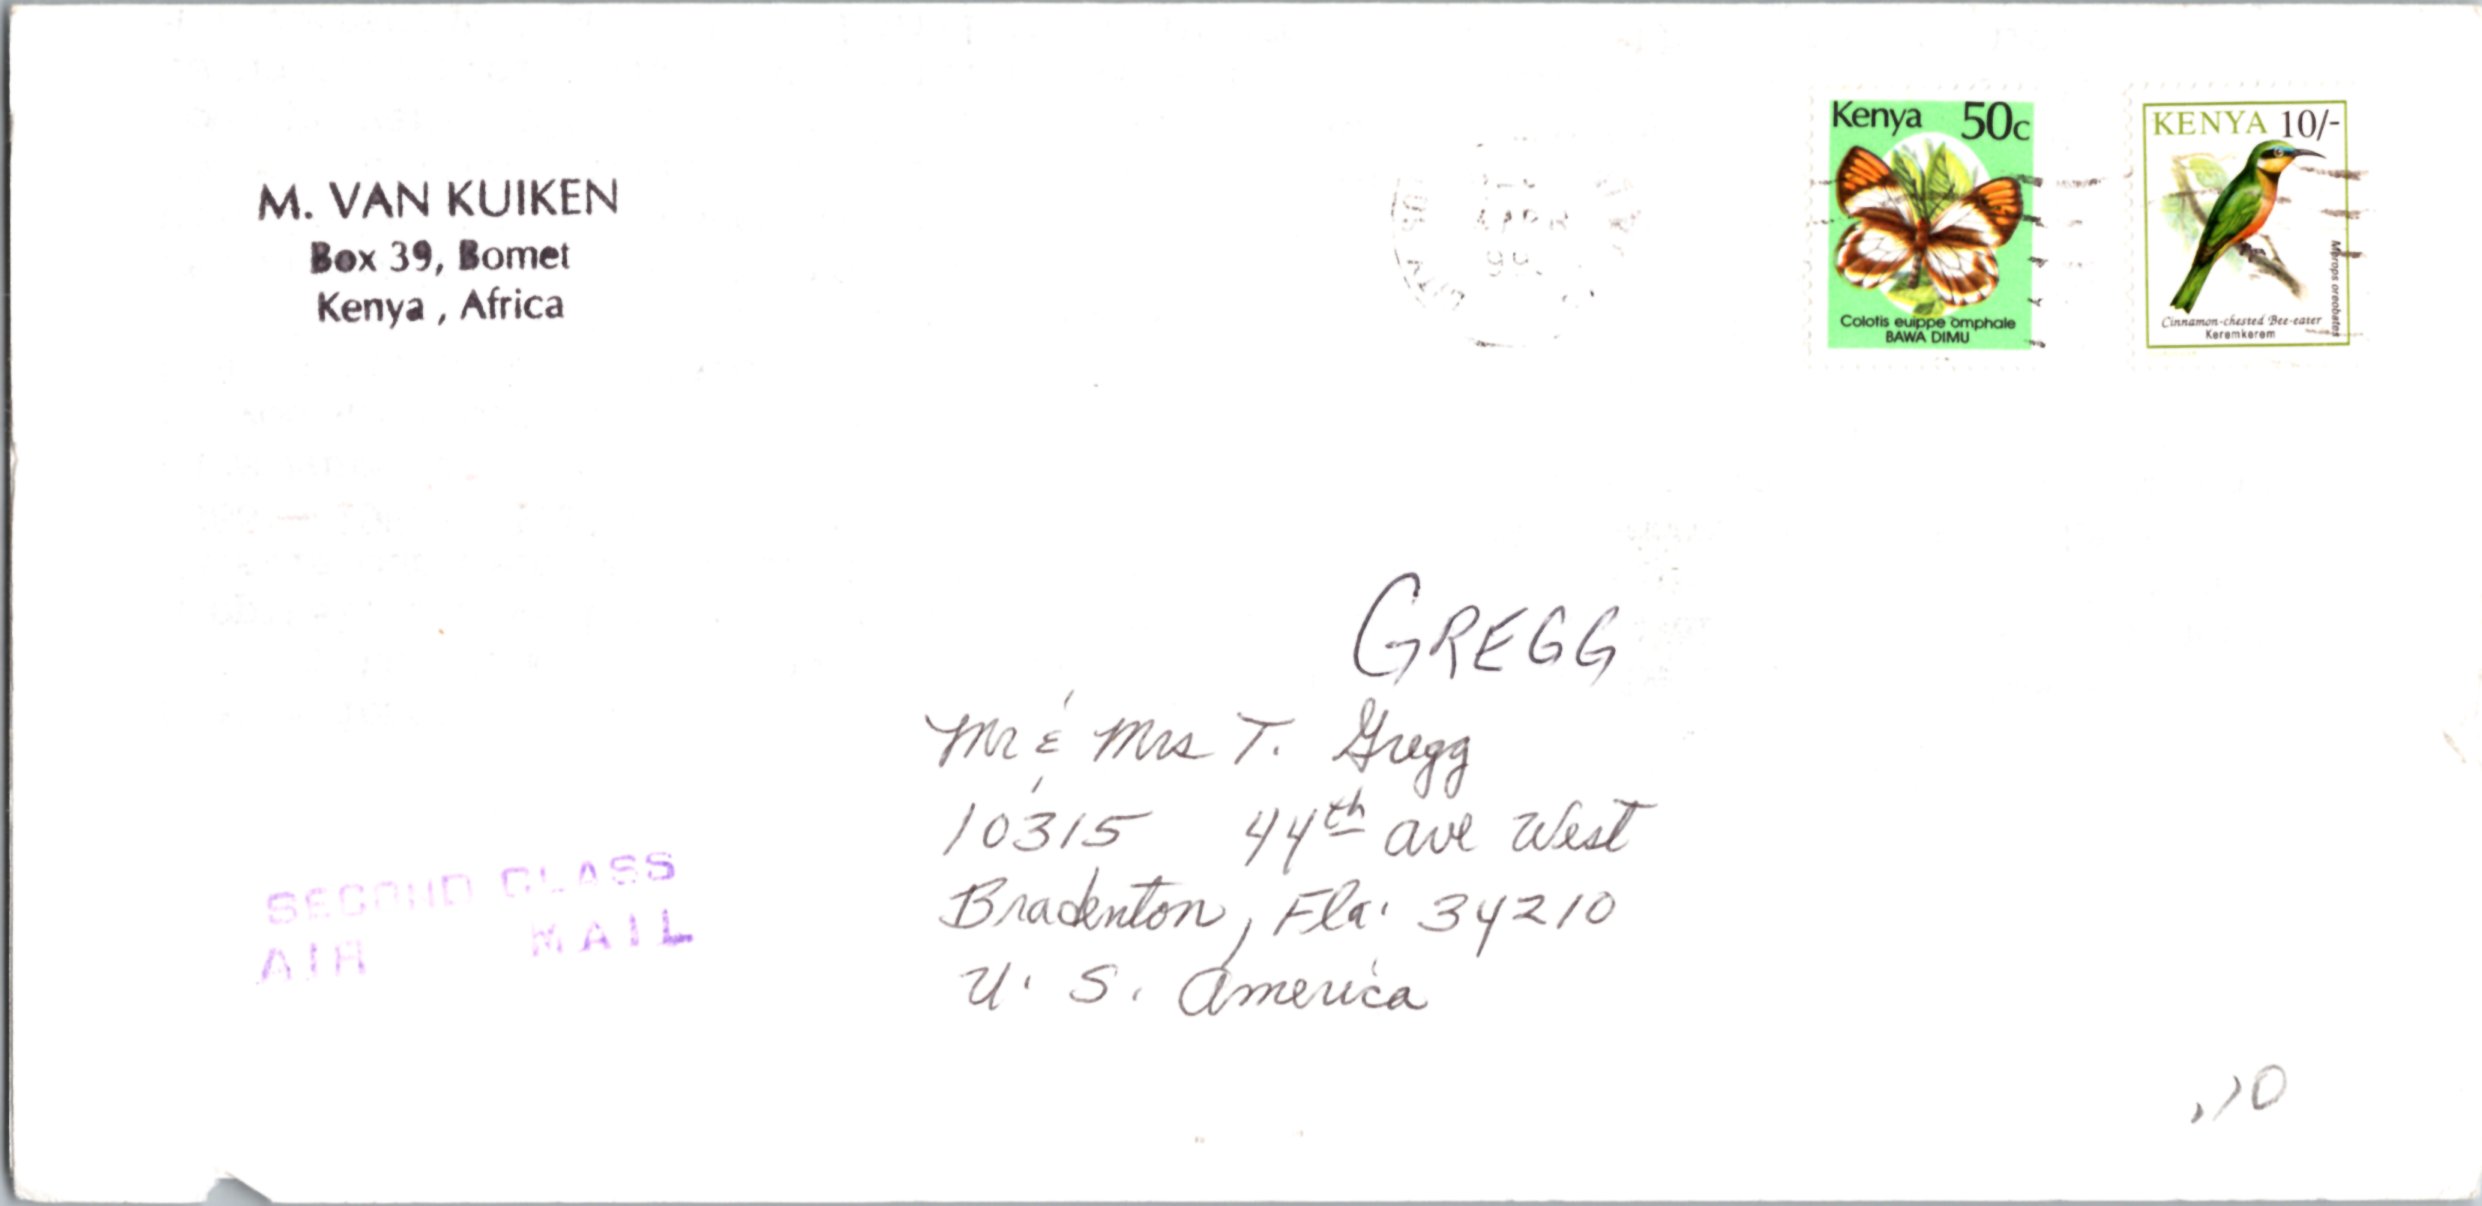 M. VAN KUIKEN
Box 39, Bomet
Kenya, Africa
Kenya 50c
Colotis euippe omphale
BAWA DIMU
KENYA 10/-
Merops oreobates
Cinnamon-chested Bee-eater
Keremkerem
GREGG
Mr & Mrs T. Gregg
10315 44th ave West
Bradenton, Fla. 34210
U. S. America
SECOND CLASS
AIR MAIL